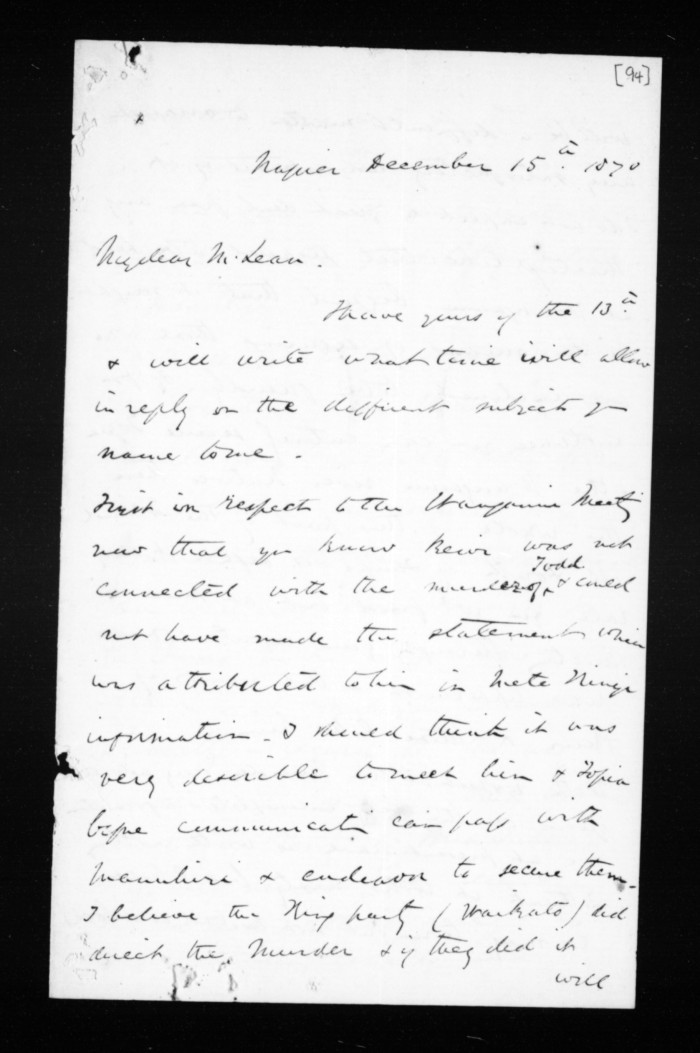 [94]
Napier December 15th. 1870
My dear McLean.
I have yours of the 13th.
& will write what time will allow
in reply on the different subjects you
name to me.
First in respect to the Wanganui Meeting
now that you know was not
Todd
connected with the murder of & could
not have made the statement which
was attributed to him in Mete Kingi
information. I should think it was
very desirible to meet him & Topia
before communicatn can pass with
Manuhiri & endeavor to secure them.
I believe the King party (Waikato) did
direct the Murder & if they did it
will